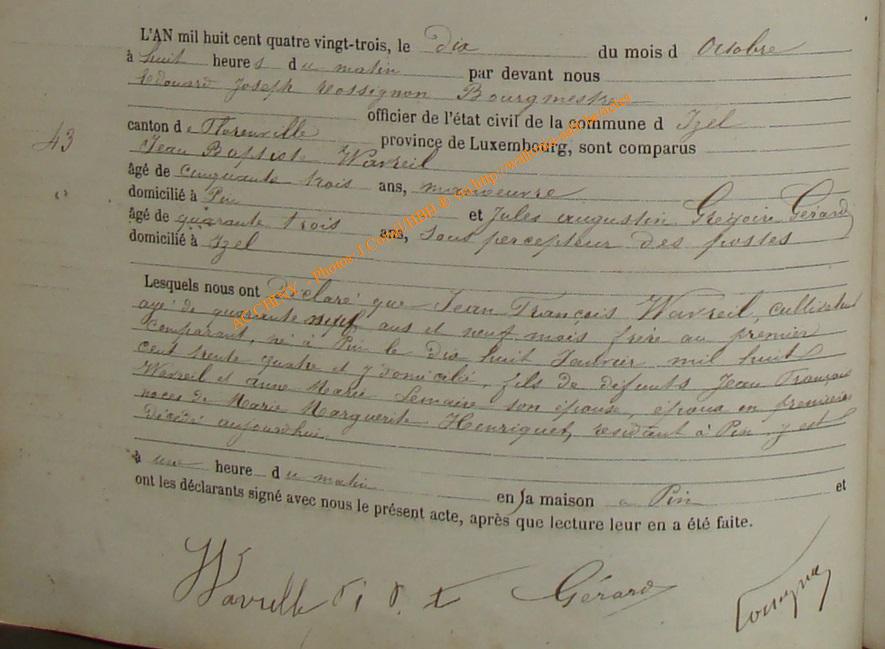 L'AN mil huit cent quatre vingt-trois, le Dix du mois d Octobre
à huit heures du matin par devant nous
Edouard Joseph Rossignon Bourgmestre
officier de l'état civil de la commune d Izel
43
canton de Florenville province de Luxembourg, sont comparus
Jean Baptiste Wavreil
âgé de cinquante trois ans, manoeuvre
domicilié à Pin et Jules Augustin Grégoire Gérard
âgé de quarante trois ans, Sous percepteur des postes
domicilié à Izel
Lesquels nous ont Déclaré que Jean François Wavreil, cultivateur
agé de quarante neuf ans et neuf mois frère au premier
comparant, né à Pin le dix huit Janvier mil huit
cent trente quatre et y domicilié, fils de défunts Jean François
Wavreil et Anne Marie Lemaire son épouse, époux en premières
noces de Marie Marguerite Henriquet, résidant à Pin y est
décédé aujourdhui
à une heure du matin en sa maison a Pin et
ont les déclarants signé avec nous le présent acte, après que lecture leur en a été faite.
Gérard